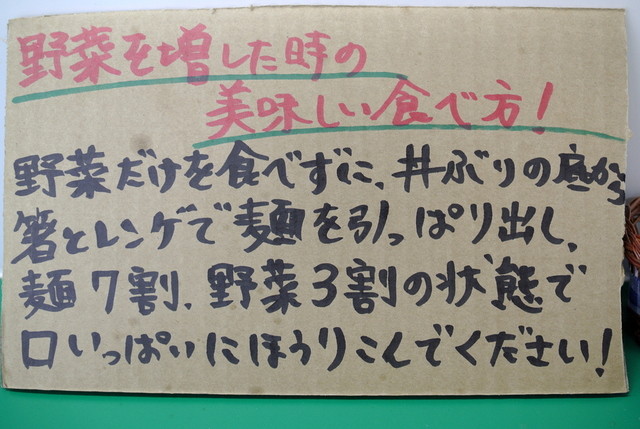 野菜を増した時の
美味しい食べ方！
野菜だけを食べずに、丼ぶりの底から
箸とレンゲで麺を引っぱり出し、
麺７割、野菜３割の状態で
口いっぱいにほうりこんでください！